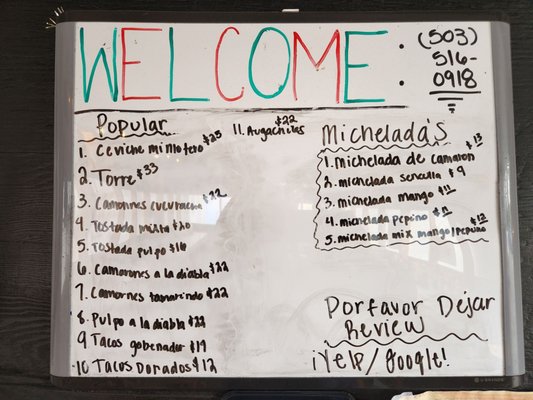 WELCOME:
(503)
516-
0918
Popular
1. Ceviche mi Motero $25
2. Torre $33
3. Camorones cucuracha $22
4. Tostada mixta $20
5. Tostada pulpo $16
6. Camarones a la diabla $22
7. Camarones tamarindo $22
8. Pulpo a la diabla $22
9 Tacos gobenador $19
10 Tacos Dorados $12
11. Augachilas $22
Michelada's
1. Michelada de camaron $13
2. michelada sencilla $9
3. michelada mango $11
4. michelada pepino $11
5. michelada mix mango/pepino $12
Porfavor Dejar
Review
¡Yelp/google!